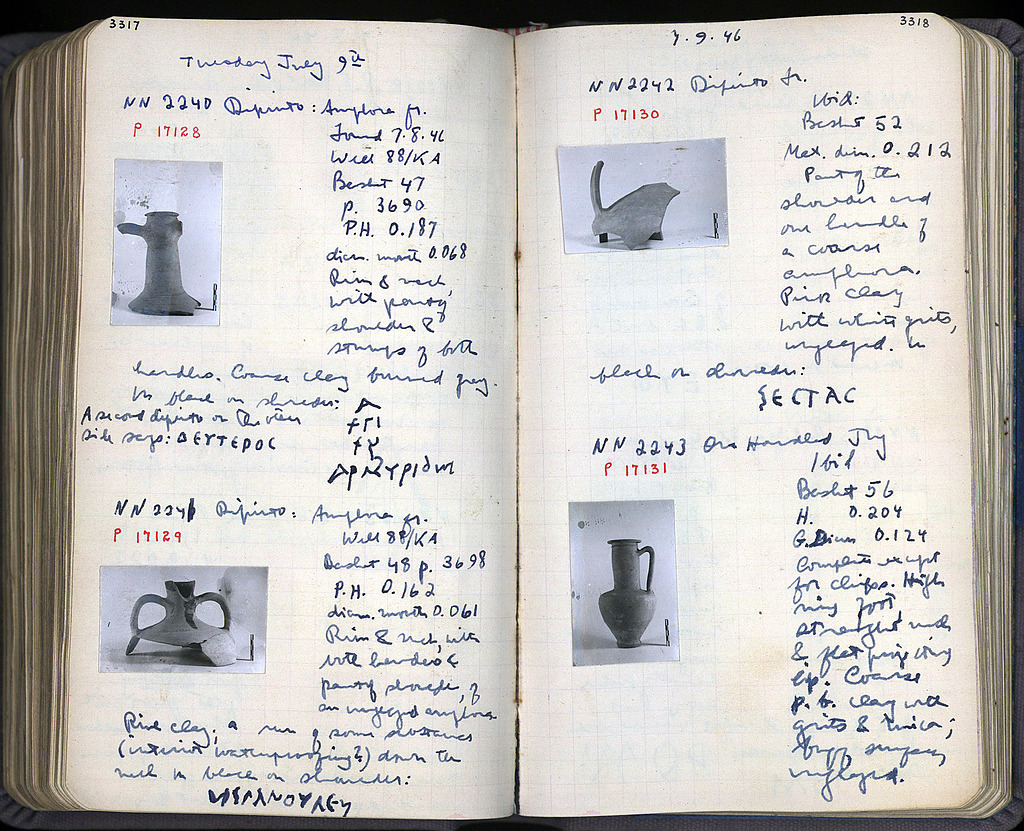 3317
Tuesday July 9th
NN 2240 Dipinto: Amphora fr.
P 17128
Found 7.8.46
Well 88/KA
Basket 47
p. 3690
P.H. 0.187
diam. mouth 0.068
Rim & neck,
with part of
shoulder &
stumps of both
handles. Coarse clay burned gray.
In black on shoulder:
A second dipinto on the other
side says: ΔΕΥΤΕΡΟC
NN 2241 Dipinto: Amphora fr.
P 17129
Well 88/KA
Basket 48 p. 3698
P.H. 0.162
diam. mouth 0.061
Rim & neck, with
both handles &
part of shoulder, of
an unglazed amphora
Pink clay; a run of some substance
(interior waterproofing?) down the
neck in black on shoulder:
3318
7.9.46
NN 2242 Dipinto fr.
P 17130
Ibid:
Basket 52
Max. dim. 0.212
Part of the
shoulder and
one handle of
a coarse
amphora.
Pink clay
with white grits,
unglazed. In
black on shoulder:
ΣΕCTAC
NN 2243 One Handled Jug
P 17131
Ibid
Basket 56
H. 0.204
G. Diam 0.124
Complete except
for chips. High
ring foot,
straight neck
& flat projecting
lip. Coarse
p. b. clay with
grits & mica;
buff surface,
unglazed.